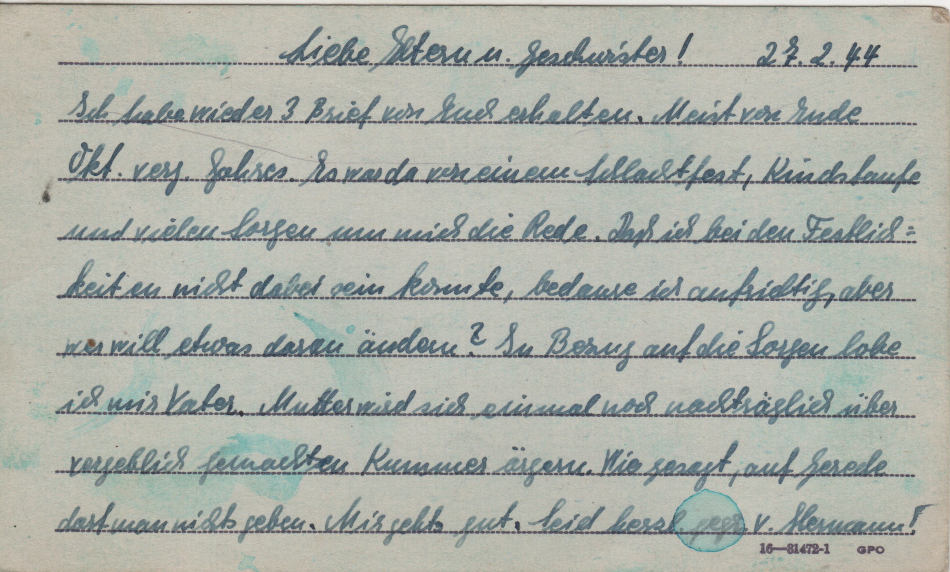 Liebe Eltern u. Geschwister! 27.2.44
Ich habe wieder 3 Brief von Euch erhalten. Meist von Ende
Okt. verg. Jahres. Es war da von einem Schlachtfest, Kindstaufe
und vielen Sorgen um mich die Rede. Daß ich bei den Festlich=
keiten nicht dabei sein konnte, bedaure ich aufrichtig, aber
wer will etwas daran ändern? In Bezug auf die Sorgen lobe
ich mir Vater. Mutter wird sich einmal noch nachträglich über
vergeblich gemachten Kummer ärgern. Wie gesagt, auf Gerede
darf man nichts geben. Mir gehts gut. Seid herzl. gegr. v. Hermann!
16—81472-1 GPO